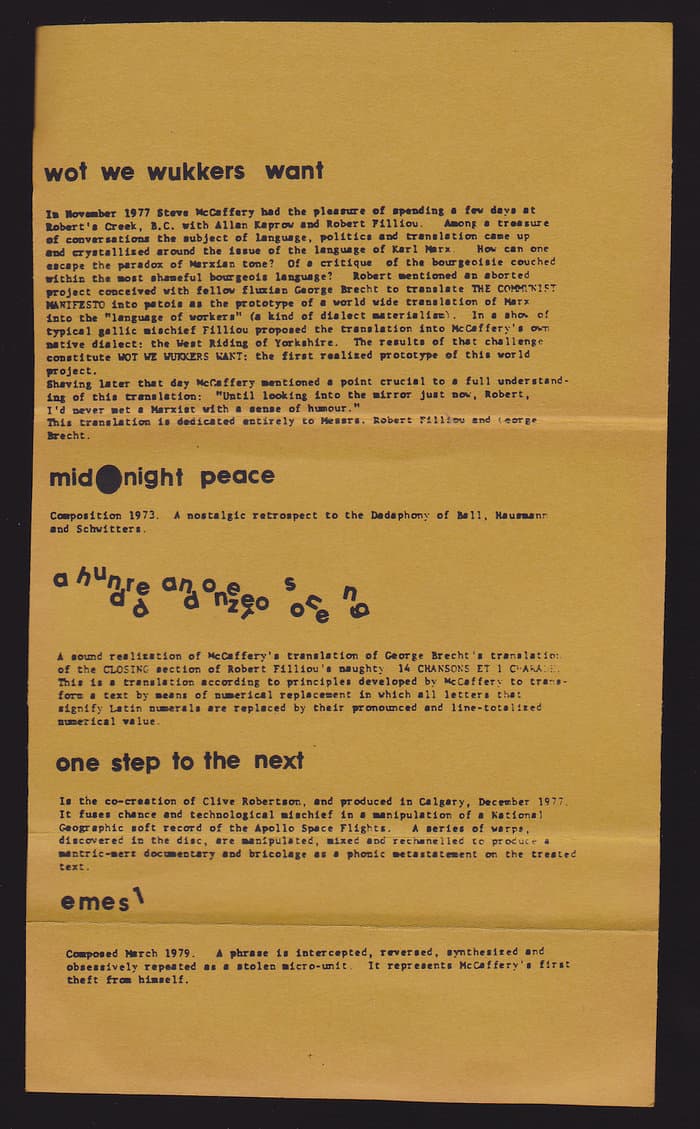 wot we wukkers want
In November 1977 Steve McCaffery had the pleasure of spending a few days at
Robert's Creek, B.C. with Allan Kaprow and Robert Filliou. Among a treasure
of conversations the subject of language, politics and translation came up
and crystallized around the issue of the language of Karl Marx How can one
escape the paradox of Marxian tone? Of a critique of the bourgeoisie couched
within the most shameful bourgeois language? Robert mentioned an aborted
project conceived with fellow fluxian George Brecht to translate THE COMMUNIST
MANIFESTO into patois as the prototype of a world wide translation of Marx
into the "language of workers" (a kind of dialect materialism). In a show of
typical gallic mischief Filliou proposed the translation into McCaffery's own
native dialect: the West Riding of Yorkshire. The results of that challenge
constitute WOT WE WUKKERS WANT: the first realized prototype of this world
project.
Shaving later that day McCaffery mentioned a point crucial to a full understand-
ing of this translation: "Until looking into the mirror just now, Robert,
I'd never met a Marxist with a sense of humour."
This translation is dedicated entirely to Messrs. Robert Filliou and George
Brecht.
mid night peace
Composition 1973. A nostalgic retrospect to the Dadaphony of Ball, Hausmann
and Schwitters.
a hundred and one zero s one ng
A sound realization of McCaffery's translation of George Brecht's translation
of the CLOSING section of Robert Filliou's naughty 14 CHANSONS ET 1 CHARADE.
This is a translation according to principles developed by McCaffery to trans-
form a text by means of numerical replacement in which all letters that
signify Latin numerals are replaced by their pronounced and line-totalized
numerical value.
one step to the next
Is the co-creation of Clive Robertson, and produced in Calgary, December 1977.
It fuses chance and technological mischief in a manipulation of a National
Geographic soft record of the Apollo Space Flights. A series of warps,
discovered in the disc, are manipulated, mixed and rechanelled to produce a
mantric-merz documentary and bricolage as a phonic metastatement on the treated
text.
emes
Composed March 1979. A phrase is intercepted, reversed, synthesized and
obsessively repeated as a stolen micro-unit. It represents McCaffery's first
theft from himself.